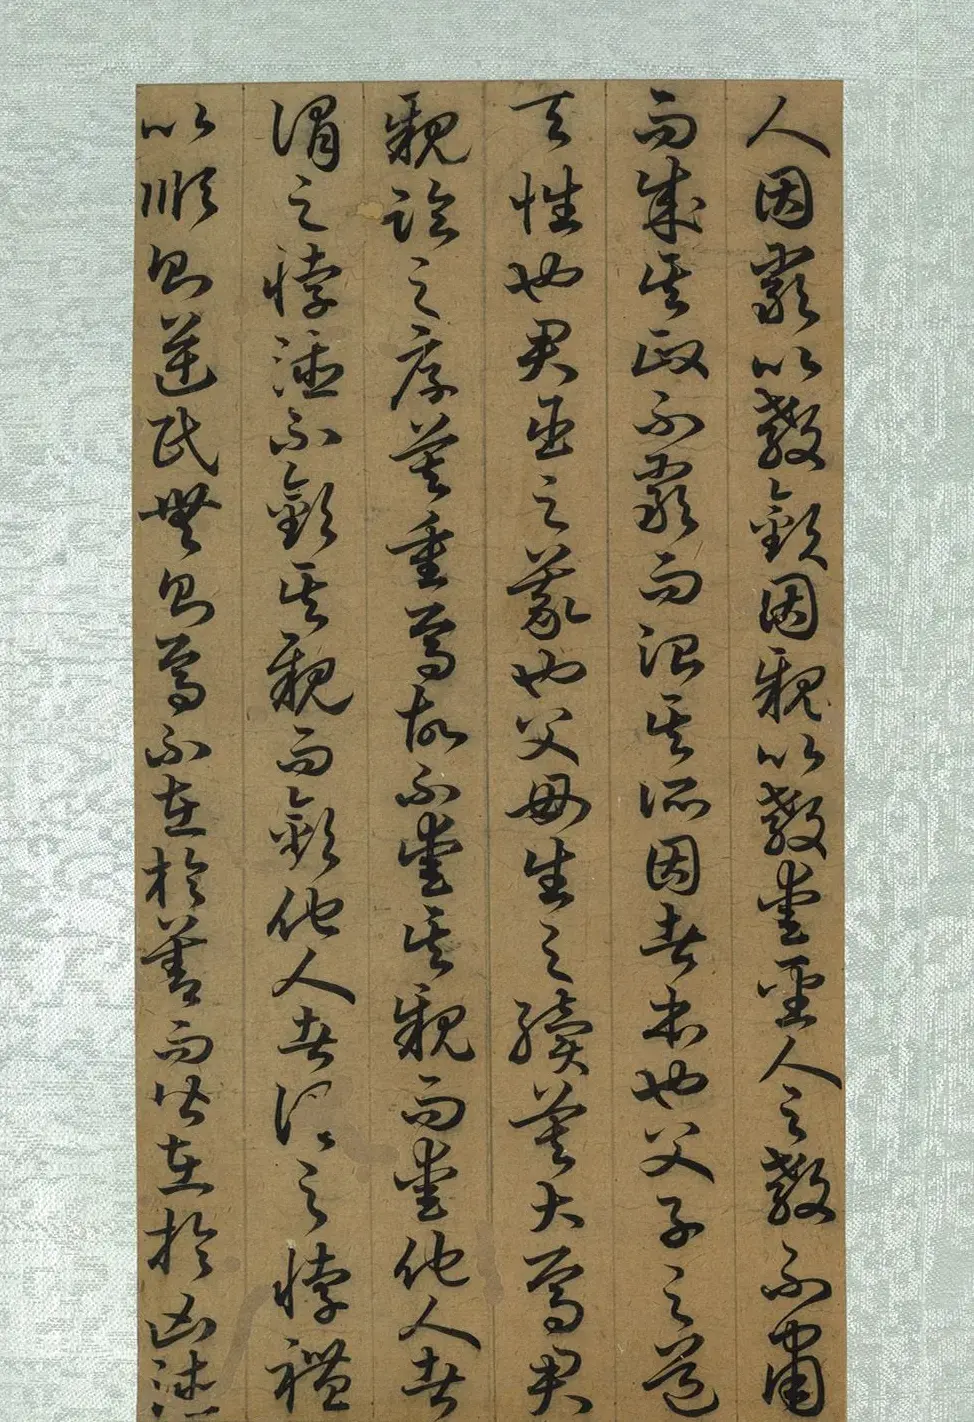 人因嚴以教敬因親以教愛聖人之教不肅
而成其政不嚴而治其所因者本也父子之道
天性也君臣之義也父母生之續莫大焉君
親臨之厚莫重焉故不愛其親而愛他人者
謂之悖德不敬其親而敬他人者謂之悖禮
以順則逆民無則焉不在於善而皆在於凶德